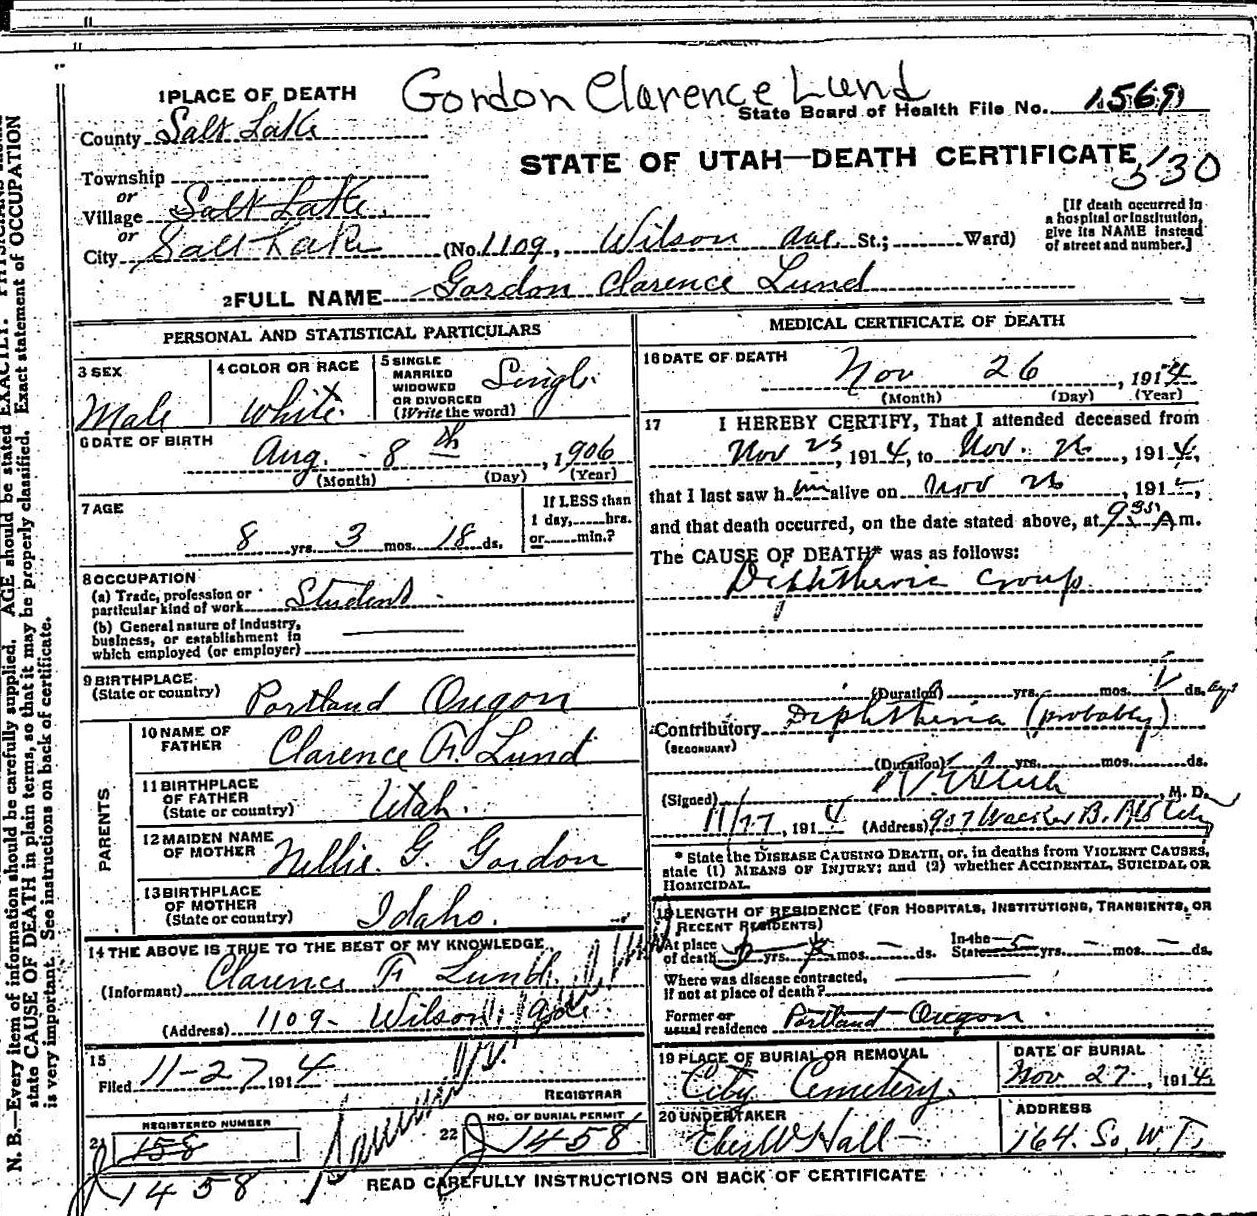 Gordon Clarence Lund
1 PLACE OF DEATH
State Board of Health File No. 1569
County Salt Lake
STATE OF UTAH—DEATH CERTIFICATE
330
Township
or
Village Salt Lake
or
City Salt Lake (No. 1109, Wilson Ave. St.; Ward)
[If death occurred in
a hospital or institution,
give its NAME instead
of street and number.]
2 FULL NAME Gordon Clarence Lund
PERSONAL AND STATISTICAL PARTICULARS
3 SEX
Male
4 COLOR OR RACE
White
5 SINGLE
MARRIED
WIDOWED
OR DIVORCED
(Write the word)
Single
6 DATE OF BIRTH
Aug. 8th, 1906
(Month) (Day) (Year)
7 AGE
8 yrs. 3 mos. 18 ds.
If LESS than
1 day, hrs.
or min.?
8 OCCUPATION
(a) Trade, profession or
particular kind of work Student
(b) General nature of industry,
business, or establishment in
which employed (or employer)
9 BIRTHPLACE
(State or country)
Portland Oregon
PARENTS
10 NAME OF
FATHER
Clarence F. Lund
11 BIRTHPLACE
OF FATHER
(State or country)
Utah.
12 MAIDEN NAME
OF MOTHER
Nellie G. Gordon
13 BIRTHPLACE
OF MOTHER
(State or country)
Idaho.
14 THE ABOVE IS TRUE TO THE BEST OF MY KNOWLEDGE
(Informant) Clarence F. Lund.
(Address) 1109 Wilson Ave.
15
Filed 11-27 1914
REGISTRAR
REGISTERED NUMBER
21 158
1458
NO. OF BURIAL PERMIT
22 1458
MEDICAL CERTIFICATE OF DEATH
16 DATE OF DEATH
Nov 26, 1914
(Month) (Day) (Year)
17 I HEREBY CERTIFY, That I attended deceased from
Nov 25, 1914, to Nov. 26, 1914,
that I last saw him alive on Nov 26, 191
and that death occurred, on the date stated above, at 9 35 A m.
The CAUSE OF DEATH* was as follows:
Diphtheric Croup
(Duration) yrs. mos. ds.
Contributory Diphtheria (probably)
(SECONDARY)
(Duration) yrs. mos. ds.
(Signed) , M. D.
11/27, 1914 (Address) 907 Walker B.
* State the DISEASE CAUSING DEATH, or, in deaths from VIOLENT CAUSES,
state (1) MEANS OF INJURY; and (2) whether ACCIDENTAL, SUICIDAL OR
HOMICIDAL.
18 LENGTH OF RESIDENCE (FOR HOSPITALS, INSTITUTIONS, TRANSIENTS, OR
RECENT RESIDENTS)
At place
of death yrs. mos. — ds.
In the
State 5 yrs. — mos. — ds.
Where was disease contracted,
if not at place of death?
Former or
usual residence Portland Oregon.
19 PLACE OF BURIAL OR REMOVAL
City Cemetery.
DATE OF BURIAL
Nov 27, 1914
20 UNDERTAKER
Eber W Hall
ADDRESS
164. So. W. T.
READ CAREFULLY INSTRUCTIONS ON BACK OF CERTIFICATE
N. B.—Every item of information should be carefully supplied. AGE should be stated EXACTLY. PHYSICIANS
state CAUSE OF DEATH in plain terms, so that it may be properly classified. Exact statement of OCCUPATION
is very important. See instructions on back of certificate.